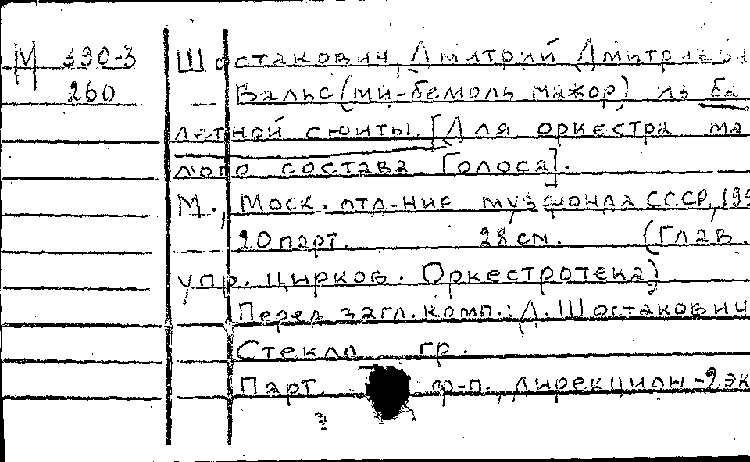 М 390-3 Шостакович, Дмитрий Дмитриеви
260 Вальс (ми-бемоль мажор) из ба
летной сюиты. [Для оркестра ма
лого состава Голоса].
М., Моск. отд-ние музфонда СССР, 195
20 парт. 28 см. (Глав.
упр. цирков. Оркестротека)
Перед загл. комп.: Д. Шостакович
Стеклогр.
Парт. ф-п., дирекцион -2 эк
3